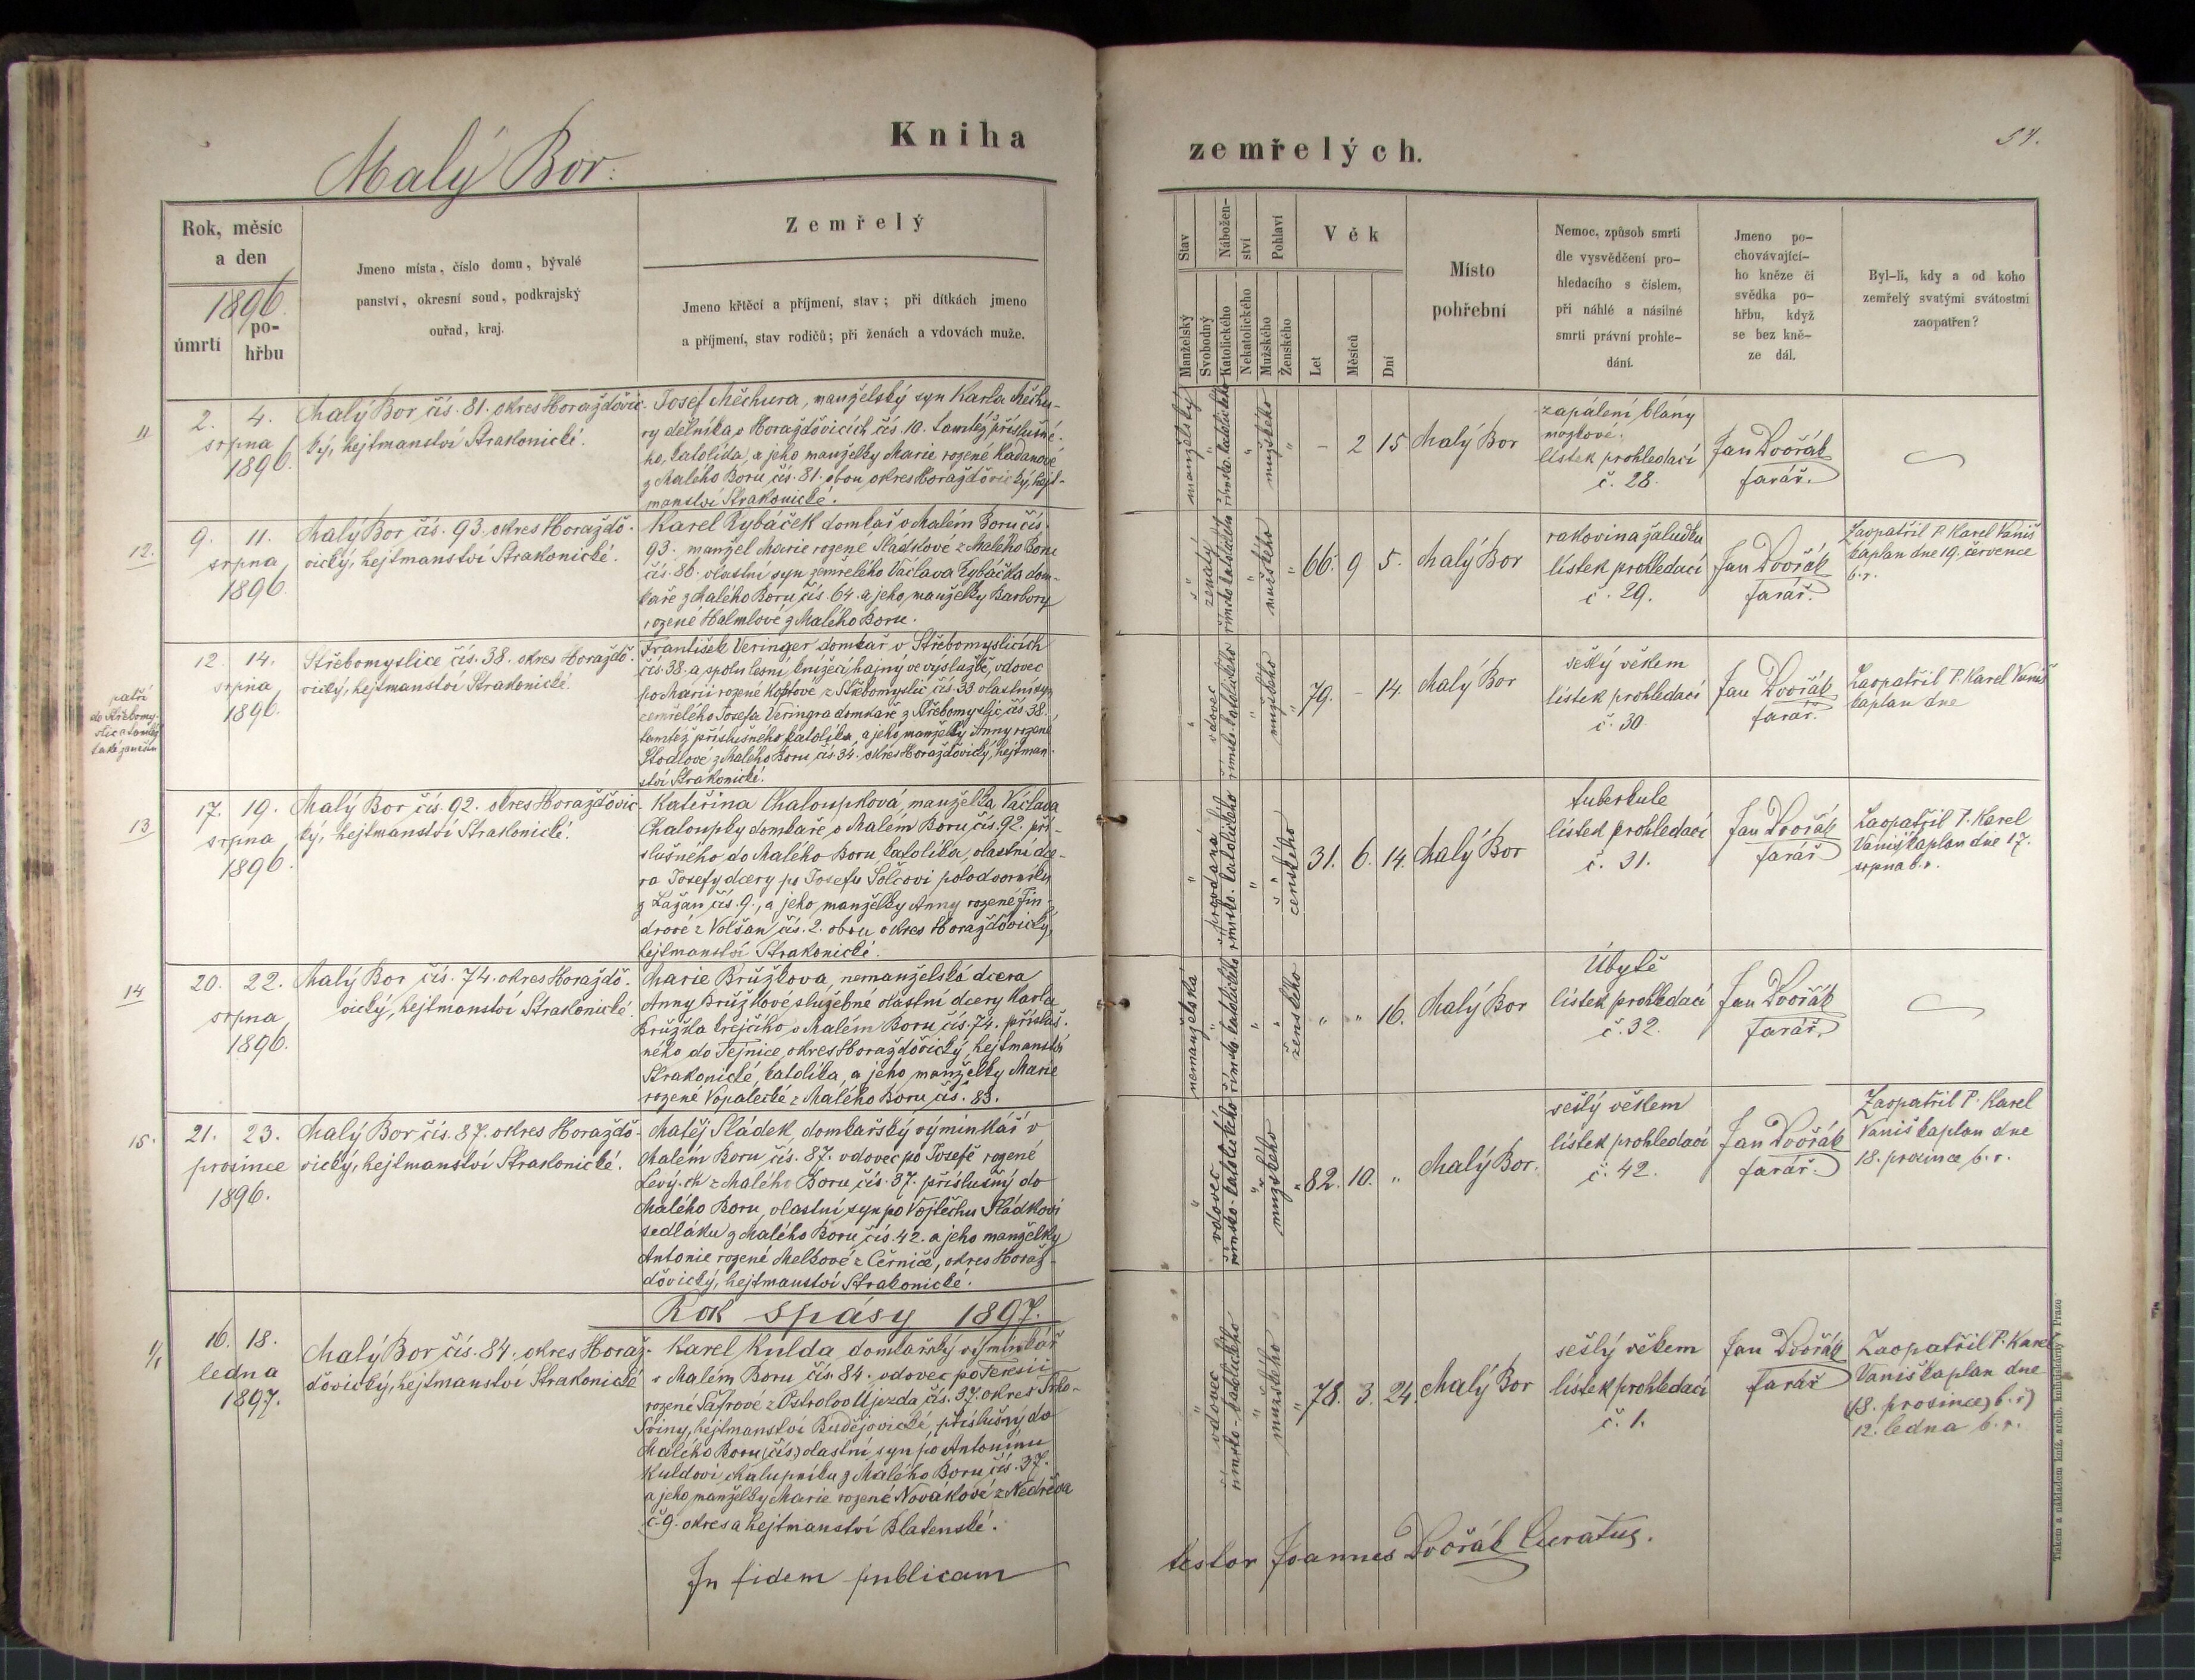 Malý Bor.
Kniha
zemřelých.
57.
Rok, měsíc
a den
1896.
úmrtí
po-
hřbu
Jmeno místa, číslo domu, bývalé
panství, okresní soud, podkrajský
ouřad, kraj.
Zemřelý
Jmeno křtěcí a příjmení, stav; při dítkách jmeno
a příjmení, stav rodičů; při ženách a vdovách muže.
Stav
Manželský
Svobodný
Nábožen-
ství
Katolického
Nekatolického
Pohlaví
Mužského
Ženského
Věk
Let
Měsíců
Dní
Místo
pohřební
Nemoc, způsob smrti
dle vysvědčení pro-
hledacího s číslem,
při náhlé a násilné
smrti právní prohle-
dání.
Jmeno po-
chovávající-
ho kněze či
svědka po-
hřbu, když
se bez kně-
ze dál.
Byl-li, kdy a od koho
zemřelý svatými svátostmi
zaopatřen?
11
2. 4.
srpna
1896.
Malý Bor čís. 81. okres Horažďovic-
ký, hejtmanství Strakonické.
Josef Měchura, manželský syn Karla Měchu-
ry dělníka v Horažďovicích čís. 10. tamtéž příslušné-
ho, katolíka, a jeho manželky Marie rozené Kadanové
z Malého Boru čís. 81. obou okres Horažďovický, hejt-
manství Strakonické.
manželský
římsko-katolického
mužského
– 2 15
Malý Bor
zapálení blány
mozkové.
lístek prohledací
č. 28.
Jan Dvořák
farář.
12.
9. 11.
srpna
1896.
Malý Bor čís. 93. okres Horaždo-
vický, hejtmanství Strakonické.
Karel Rybáček domkař v Malém Boru čís.
93. manžel Marie rozené Sládkové z Malého Boru
čís. 86. vlastní syn zemřelého Václava Rybáčka dom-
kaře z Malého Boru čís. 64. a jeho manželky Barbory
rozené Halmlové z Malého Boru.
ženatý
římsko katolického
mužského
66. 9 5.
Malý Bor
rakovina žaludku
lístek prohledací
č. 29.
Jan Dvořák
farář.
Zaopatřil P. Karel Vaniš
kaplan dne 19. července
b. r.
patří
do Střebomy-
slic a tamtéž
také zanešen
12. 14.
srpna
1896.
Střebomyslice čís. 38. okres Horaždo-
vický, hejtmanství Strakonické.
František Veringer domkař v Střebomyslicích
čís. 38. a spolu lesní knížecí hajný ve výslužbě, vdovec
po Marii rozené Koptové z Střebomyslic čís. 33 vlastní syn
zemřelého Josefa Veringra domkaře z Střebomyslic čís. 38.
tamtéž příslušného katolíka a jeho manželky Anny rozené
Stodlové z Malého Boru, čís. 34. okres Horažďovický, hejtman-
ství Strakonické.
vdovec
římsko-katolického
mužského
79. – 14.
Malý Bor
sešlý věkem
lístek prohledací
č. 30
Jan Dvořák
farář.
Zaopatřil P. Karel Vaniš
kaplan dne
13
17. 19.
srpna
1896.
Malý Bor čís. 92. okres Horažďovic-
ký, hejtmanství Strakonické.
Kateřina Chaloupková, manželka Václava
Chaloupky domkaře v Malém Boru čís. 92. pří-
slušného do Malého Boru, katolíka, vlastní dce-
ra Josefy dcery po Josefu Šolcovi polodvorníku
z Lažan čís. 9., a jeho manželky Anny rozené Fin-
drové z Volšan čís. 2. obou okres Horažďovický,
hejtmanství Strakonické.
provdaná
římsko-katolického
ženského
31. 6. 14.
Malý Bor
tuberkule
lístek prohledací
č. 31.
Jan Dvořák
farář
Zaopatřil P. Karel
Vaniš kaplan dne 17.
srpna b. r.
14
20. 22.
srpna
1896.
Malý Bor čís. 74. okres Horaždo-
vický, hejtmanství Strakonické.
Marie Brůžkova, nemanželská dcera
Anny Brůžkové služebné vlastní dcery Karla
Brůžka krejčího v Malém Boru čís. 74. přísluš-
ného do Tejnice, okres Horažďovický, hejtmanství
Strakonické, katolíka, a jeho manželky Marie
rozené Vopalecké z Malého Boru čís. 83.
nemanželská
římsko-katolického
ženského
" " 16.
Malý Bor
Úbytě
lístek prohledací
č. 32.
Jan Dvořák
farář.
15.
21. 23.
prosince
1896.
Malý Bor čís. 87. okres Horaždo-
vický, hejtmanství Strakonické.
Matěj Sládek, domkařský výminkář v
Malém Boru čís. 87. vdovec po Josefě rozené
z Malého Boru čís. 37. příslušný do
Malého Boru, vlastní syn po Vojtěchu Sládkovi
sedláku z Malého Boru čís. 42. a jeho manželky
Antonie rozené Melkové z Černíče, okres Horaž-
ďovický, hejtmanství Strakonické.
vdovec
římsko-katolického
mužského
82. 10. "
Malý Bor.
sešlý věkem
lístek prohledací
č. 42.
Jan Dvořák
farář.
Zaopatřil P. Karel
Vaniš kaplan dne
18. prosince b. r.
Rok spásy 1897.
1/1
16. 18.
ledna
1897.
Malý Bor čís. 84. okres Horaž-
ďovický, hejtmanství Strakonické
Karel Kulda domkařský výminkář
v Malém Boru čís. 84. vdovec po Terezii
rozené Šafrové z Ostrolovo Újezda čís. 37. okres Trho-
Sviny, hejtmanství Budějovické, příslušný do
Malého Boru (čís) vlastní syn po Antonínu
Kuldovi chalupníku z Malého Boru čís. 37.
a jeho manželky Marie rozené Novákové z Kedřeva
č. 9. okres a hejtmanství Blatenské.
vdovec
římsko-katolického
mužského
78. 3. 24.
Malý Bor
sešlý věkem
lístek prohledací
č. 1.
Jan Dvořák
farář
Zaopatřil P. Karel
Vaniš kaplan dne
(18. prosince b. r.)
12. ledna b. r.
In fidem publicam
testor Joannes Dvořák Curatus.
Tiskem a nákladem kníž. arcib. knihtiskárny v Praze